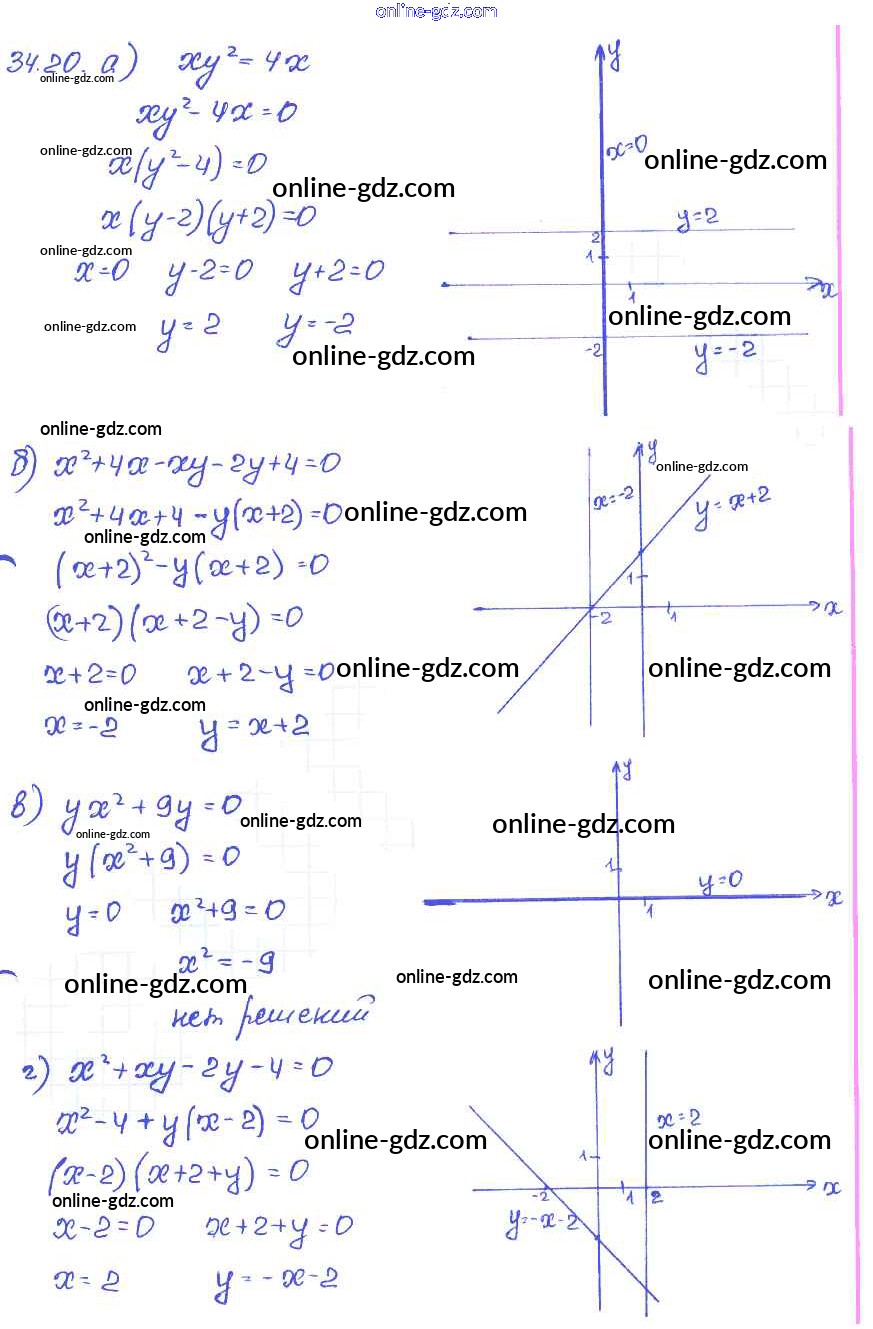 online-gdz.com
34.20. а) xy² = 4x
online-gdz.com
xy² - 4x = 0
online-gdz.com
x(y² - 4) = 0
online-gdz.com
x(y-2)(y+2) = 0
online-gdz.com
x=0 y-2=0 y+2=0
online-gdz.com
y = 2 y = -2
online-gdz.com
y
x=0
online-gdz.com
y=2
2
1
x
1
online-gdz.com
-2
y=-2
online-gdz.com
б) x²+4x-xy-2y+4=0
x²+4x+4-y(x+2)=0
online-gdz.com
online-gdz.com
(x+2)²-y(x+2)=0
(x+2)(x+2-y)=0
x+2=0 x+2-y=0
online-gdz.com
online-gdz.com
x=-2 y=x+2
y
online-gdz.com
x=-2
y=x+2
1
x
-2
1
online-gdz.com
в) yx²+9y=0
online-gdz.com
online-gdz.com
y(x²+9)=0
y=0 x²+9=0
x²=-9
online-gdz.com
нет решений
y
online-gdz.com
1
y=0
x
1
online-gdz.com
online-gdz.com
г) x²+xy-2y-4=0
x²-4+y(x-2)=0
online-gdz.com
(x-2)(x+2+y)=0
online-gdz.com
x-2=0 x+2+y=0
x=2 y=-x-2
y
x=2
online-gdz.com
1
x
-2
1
2
y=-x-2